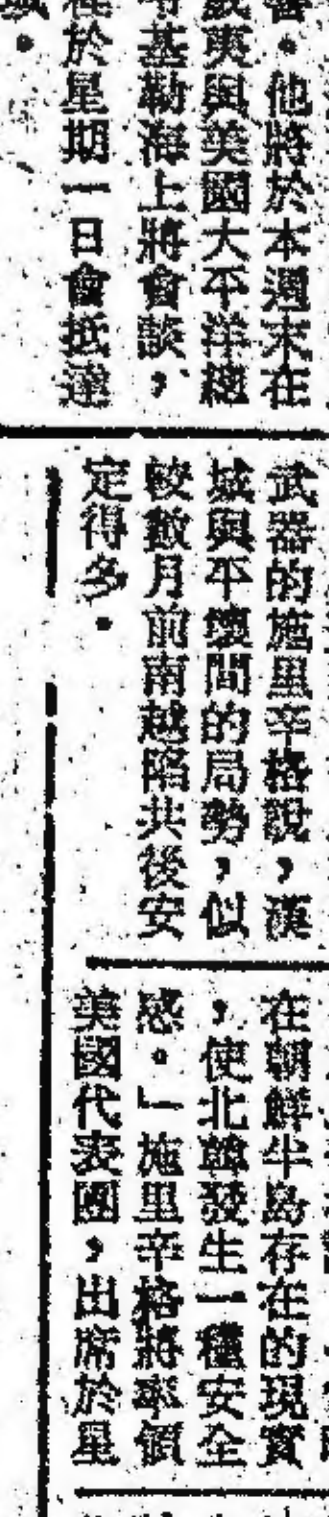 響。他將於本週末在
威夷與美國太平洋總
基勒海上將會談,
程於星期一日會抵達
城。
武器的施里辛格說,漢
城與平壤間的局勢,似
較數月前南越陷共後安
定得多。
在朝鮮半島存在的現實
,使北韓發生一種安全
感。」施里辛格將率領
美國代表團,出席於星